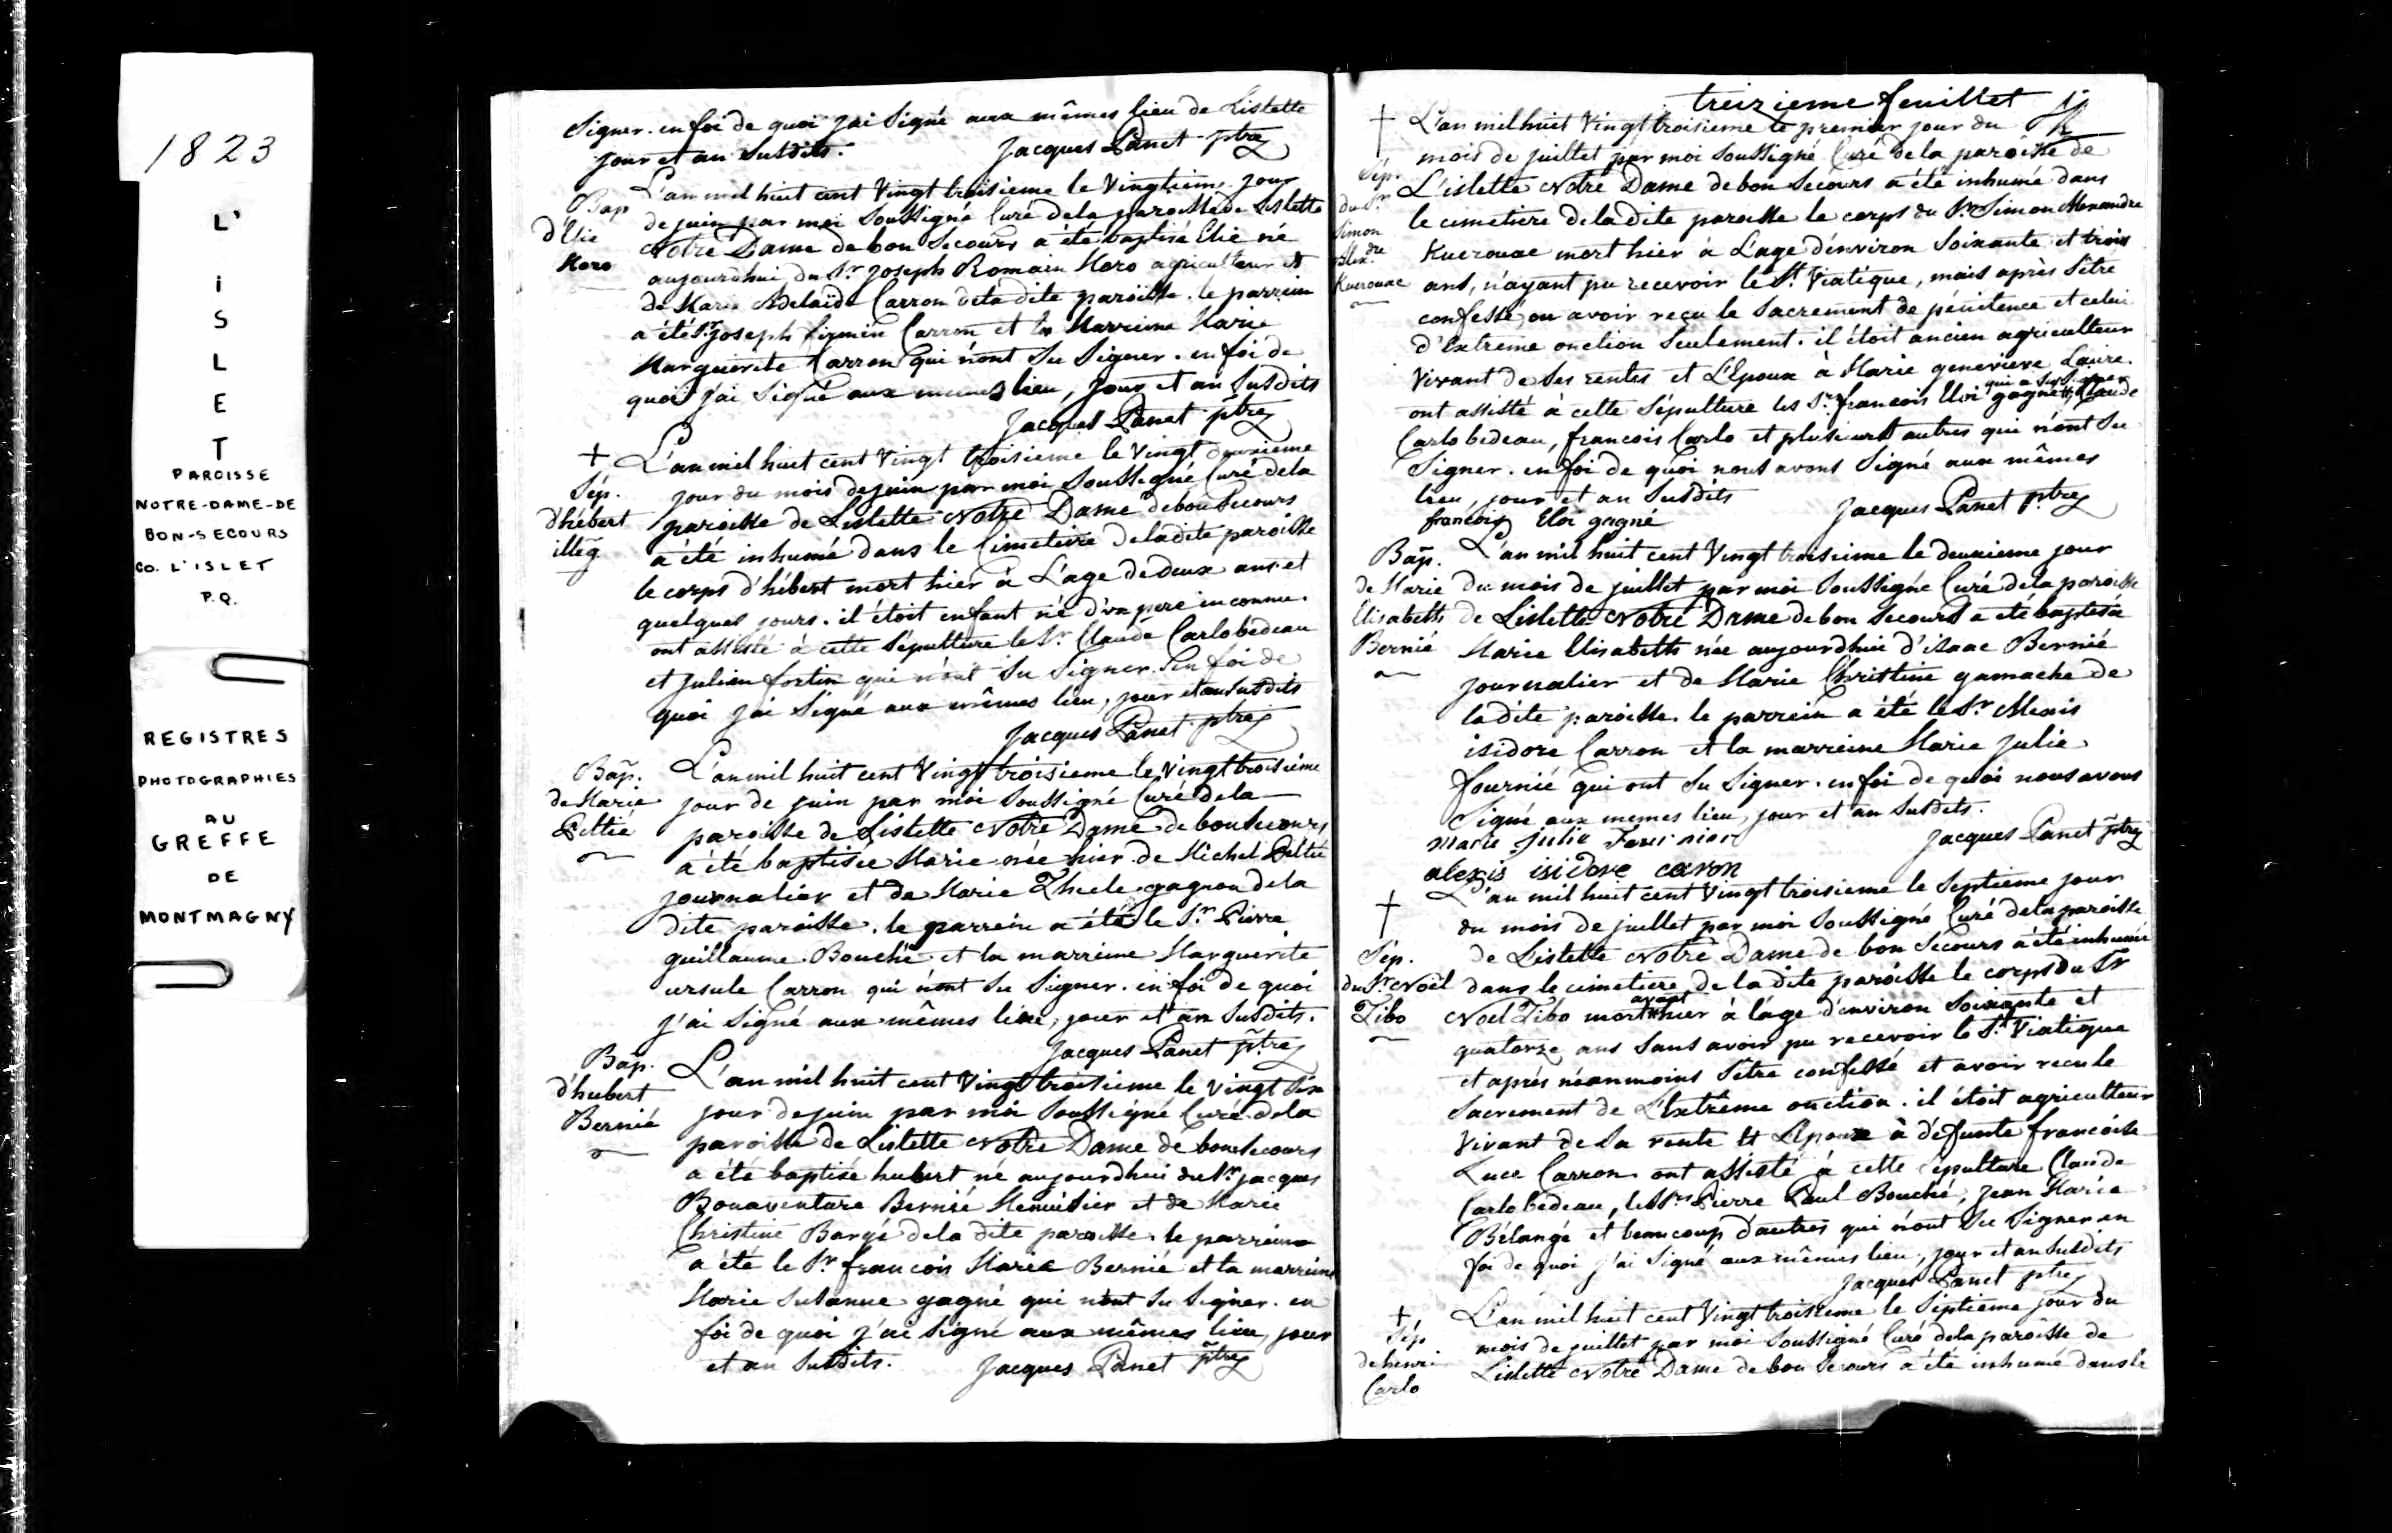 1823
L'
i
S
L
E
T
PAROISSE
NOTRE-DAME-DE
BON-SECOURS
CO. L'ISLET
P.Q.
REGISTRES
PHOTOGRAPHIES
AU
GREFFE
DE
MONTMAGNY
Signer. en foi de quoi j'ai Signé aux mêmes lieu de Lislette
jour et an Susdits. Jacques Panet ptre
Bap
d'Elie
Moro
L'an mil huit cent Vingt troisieme le Vingtieme jour
de juin par moi Soussigné Curé dela paroisse de Lislette
Notre Dame de bon Secours a été baptisé Elie né
aujourdhui du Sr joseph Romain Moro agriculteur et
de Marie Adelaïde Carron dela dite paroisse. le parrein
a été Sr joseph firmin Carron et la Marreine Marie
Marguerite Carron qui n'ont Su Signer. en foi de
quoi j'ai Signé aux memes lieu, jour et an Susdits
Jacques Panet ptre
+
Sép.
d'hébert
illég
L'an mil huit cent Vingt troisieme le Vingt deuxieme
jour du mois de juin par moi Soussigné Curé dela
paroisse de Lislette Notre Dame de bon Secours
a été inhumé dans le Cimetiere deladite paroisse
le corps d'hébert mort hier à L'age de deux ans et
quelques jours. il étoit enfant né d'un pere inconnu.
ont assisté à cette Sépulture le Sr Claude Carlobedeau
et julien fortin qui n'ont Su Signer. En foi de
quoi j'ai Signé aux mêmes lieu, jour et an Susdits
Jacques Panet ptre
Bap.
de Marie
Peltié
L'an mil huit cent Vingt troisieme le Vingt troisieme
jour de juin par moi Soussigné Curé dela
paroisse de Lislette Notre Dame de bon Secours
a été baptisée Marie née hier de Michel Peltié
journalier et de Marie Thecle gagnon dela
dite paroisse. le parrein a été le Sr Pierre
guillaume Bouché et la marreine Marguerite
ursule Carron qui n'ont Su Signer. en foi de quoi
j'ai Signé aux mêmes lieu, jour et an Susdits.
Jacques Panet ptre
Bap.
d'hubert
Bernié
L'an mil huit cent Vingt troisieme le Vingt Six
jour de juin par moi Soussigné Curé dela
paroisse de Lislette Notre Dame de bon Secours
a été baptisé hubert né aujourdhui du Sr jacques
Bonaventure Bernié Menuisier et de Marie
Christine Bargé dela dite paroisse. le parrein
a été le Sr francois Marie Bernié et la marreine
Marie Susanne gagné qui n'ont Su Signer. en
foi de quoi j'ai Signé aux mêmes lieu, jour
et an Susdits. Jacques Panet ptre
treizieme feuillet
+
Sép.
du Sr
Simon
Alexdre
Kuerouac
L'an mil huit Vingt troisieme le premier jour du
mois de juillet par moi Soussigné Curé dela paroisse de
L'islette Notre Dame de bon Secours a été inhumé dans
le cimetiere de ladite paroisse le corps du Sr Simon Alexandre
Kuerouac mort hier à L'age d'environ Soixante et trois
ans, n'ayant pu recevoir le St. Viatique, mais après S'être
confessé, ou avoir reçu le Sacrement de pénitence et celui
d'Extreme onction Seulement. il étoit ancien agriculteur
Vivant de Ses rentes et L'Epoux à Marie genevieve Laire.
ont assisté à cette Sépulture les Srs francois Eloi gagné qui a Su Signer, Claude
Carlobedeau, francois Carlo et plusieurs autres qui n'ont Su
Signer. en foi de quoi nous avons Signé aux mêmes
lieu, jour et an Susdits Jacques Panet ptre
francois Eloi gagné
Bap.
de Marie
Elisabeth
Bernié
L'an mil huit cent Vingt troisieme le deuxieme jour
du mois de juillet par moi Soussigné Curé dela paroisse
de Lislette Notre Dame de bon Secours a été baptisée
Marie Elisabeth née aujourdhui d'isaac Bernié
journalier et de Marie Christine gamache de
la dite paroisse. le parrein a été le Sr Alexis
isidore Carron et la marreine Marie julie
fournié qui ont Su Signer. en foi de quoi nous avons
Signé aux memes lieu, jour et an Susdits.
marie julie Fournier Jacques Panet ptre
alexis isidore caron
+
Sép.
du Sr Noël
Tibo
L'an mil huit cent Vingt troisieme le Septieme jour
du mois de juillet par moi Soussigné Curé dela paroisse
de Lislette Notre Dame de bon Secours a été inhumé
dans le cimetiere de la dite paroisse le corps du Sr
Noël Tibo mort avant hier à l'âge d'environ Soixante et
quatorze ans Sans avoir pu recevoir le St. Viatique
et après néanmoins S'être confessé et avoir recu le
Sacrement de L'Extrême onction. il étoit agriculteur
Vivant de Sa rente et L'Epoux à défunte francoise
Luce Carron. ont assisté à cette Sépulture Claude
Carlobedeau, les Srs Pierre Paul Bouché, jean Marie
Bélangé et beaucoup d'autres qui n'ont Su Signer en
foi de quoi j'ai Signé aux mêmes lieu, jour et an Susdits
Jacques Panet ptre
+
Sép
de henri
Carlo
L'an mil huit cent Vingt troisieme le Septieme jour du
mois de juillet par moi Soussigné Curé dela paroisse de
Lislette Notre Dame de bon Secours a été inhumé dans le